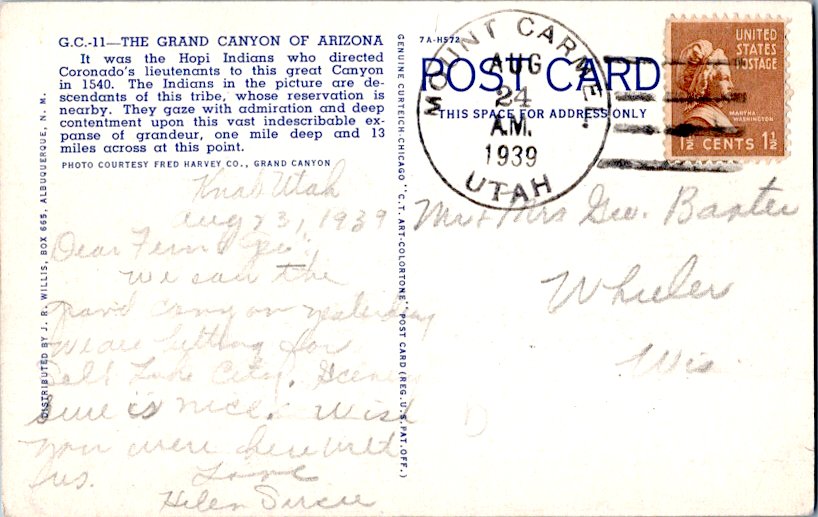 G.C.-11—THE GRAND CANYON OF ARIZONA
It was the Hopi Indians who directed
Coronado's lieutenants to this great Canyon
in 1540. The Indians in the picture are de-
scendants of this tribe, whose reservation is
nearby. They gaze with admiration and deep
contentment upon this vast indescribable ex-
panse of grandeur, one mile deep and 13
miles across at this point.
PHOTO COURTESY FRED HARVEY CO., GRAND CANYON
DISTRIBUTED BY J. R. WILLIS, BOX 665, ALBUQUERQUE, N. M.
Utah
Aug 23, 1939
Dear Fern &
We saw the
grand canyon yesterday
We are hitting for
Salt Lake City. Scenery
sure is nice. Wish
you were here with
us. Love
Helen
GENUINE CURTEICH-CHICAGO "C.T. ART-COLORTONE" POST CARD (REG. U.S. PAT. OFF.)
7A-H572
POST CARD
THIS SPACE FOR ADDRESS ONLY
MOUNT CARMEL.
AUG
24
A.M.
1939
UTAH
UNITED
STATES
POSTAGE
MARTHA
WASHINGTON
1½ CENTS 1½
Mr + Mrs Geo. Baxter
Wheeler
Wis.